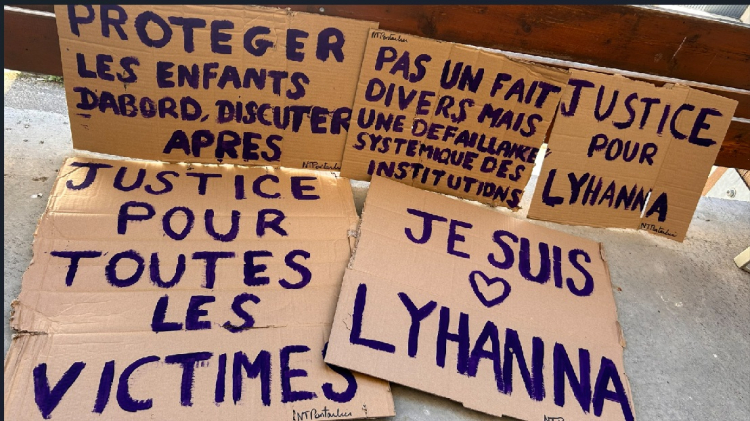 PROTEGER
LES ENFANTS
DABORD, DISCUTER
APRES
PAS UN FAIT
DIVERS MAIS
UNE DEFAILLANCE
SYSTEMIQUE DES
INSTITUTIONS
JUSTICE
POUR
LYHANNA
JUSTICE
POUR
TOUTES
LES
VICTIMES
JE SUIS
♡
LYHANNA